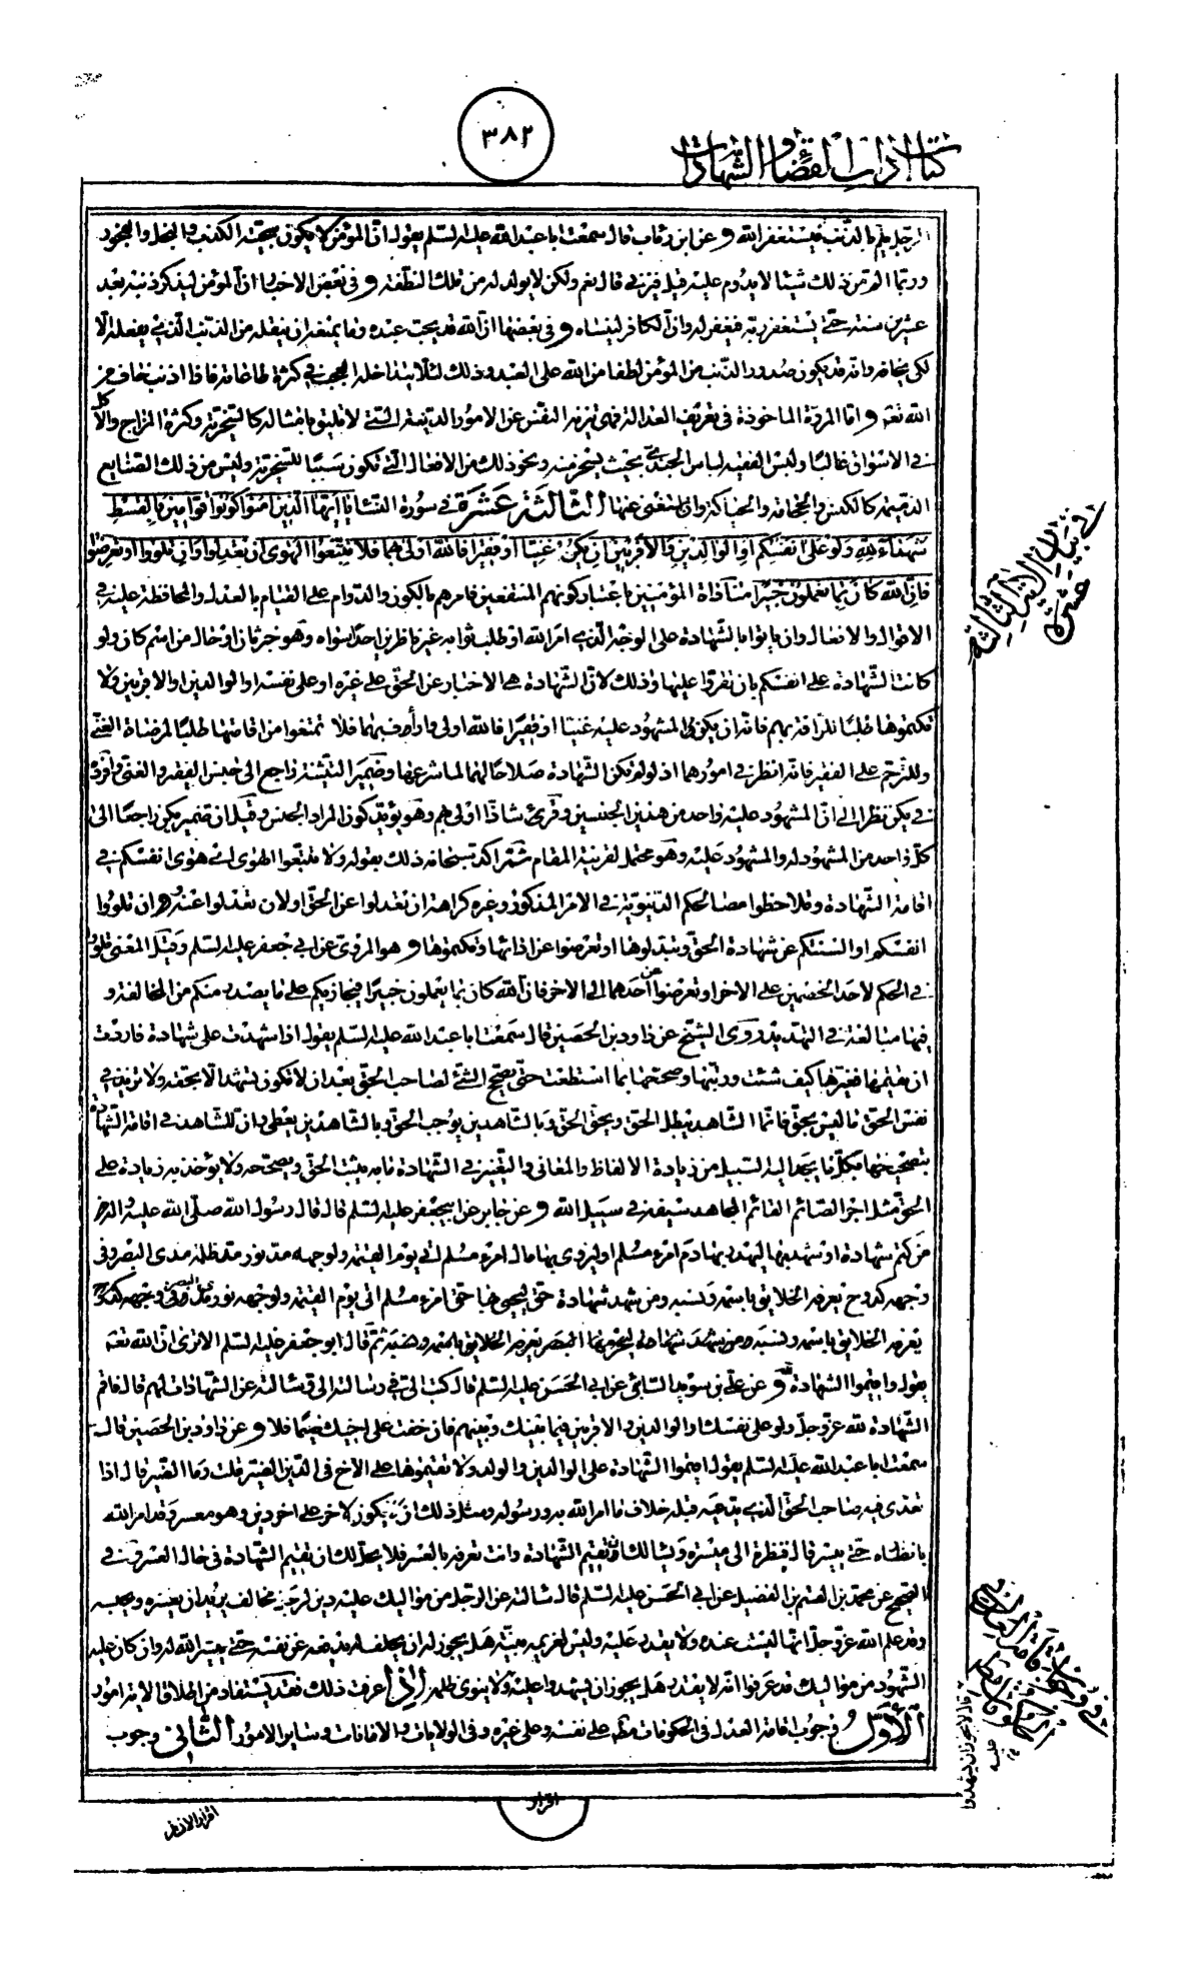 ٣٨٢
كتاب آداب القضاء والشهادات
الرجل يلم بالذنب فيستغفر الله و عن ابن رئاب قال سمعت ابا عبد الله عليه السلم يقول ان المؤمن لا يكون سجيته الكذب والبخل والفجور
وربما الم من ذلك شيئا لا يدوم عليه قيل فيزني قال نعم ولكن لا يولد له من تلك النطفة و في بعض الاخبار ان المؤمن ليذكر ذنبه بعد
عشرين سنة حتى يستغفر ربه فيغفر له وان الكافر لينساه و في بعضها ان الله قد يحب عبده وما يمنعه ان ينقله من الذنب الذي يفعله الا
لكي يخافه وانه قد يكون صدور الذنب من المؤمن لطفا من الله على العبد وذلك لئلا يتداخله العجب في كثرة طاعاته فاذا اذنب خاف من
الله تعه و اما المروة الماخوذة في تعريف العدالة فهي تنزيه النفس عن الامور الدنية التي لا تليق بامثاله كالسخرية وكثرة المزاج والاكل
في الاسواق غالبا ولبس الفقيه لباس الجندي بحيث يسخر منه ونحو ذلك من الافعال التي تكون سببا للسخرية وليس من ذلك الصنايع
الدنية كالكنس والحجامة والحياكة وان استغنى عنها الثالثة عشرة في سورة النساء يا ايها الذين امنوا كونوا قوامين بالقسط
شهداء لله ولو على انفسكم او الوالدين والاقربين ان يكن غنيا او فقيرا فالله اولى بهما فلا تتبعوا الهوى ان تعدلوا وان تلووا او تعرضوا
فان الله كان بما تعملون خبيرا مناداة المؤمنين باعتبار كونهم المنتفعين فامرهم بالكون والدوام على القيام بالعدل والمحافظة عليه في
الاقوال والافعال وان ياتوا بالشهادة على الوجه الذي امر الله او طلب ثوابه غير ناظرين احدا سواه وهو خبر ثان او حال من اسم كان ولو
كانت الشهادة على انفسكم بان تقروا عليها وذلك لان الشهادة هي الاخبار عن الحق على غيره او على نفسه او الوالدين او الاقربين ولا
تكتموها طلبا للرافة بهم فانه ان يكن المشهود عليه غنيا او فقيرا فالله اولى وارأف بهما فلا تمتنعوا من اقامتها طلبا لمرضاة الغني
وللترحم على الفقير فانه انظر في امورهما اذ لو لم تكن الشهادة صلاحا لهما لما شرعها وضمير التثنية راجع الى جنس الفقير والغني وافرد
في يكن نظرا الى ان المشهود عليه واحد من هذين الجنسين وقرئ شاذا اولى بهم وهو يؤيد كون المراد الجنس وقيل ان ضمير يكن راجعا الى
كل واحد من المشهود له والمشهود عليه وهو محتمل لقرينة المقام ثم اكد سبحانه ذلك بقوله ولا تتبعوا الهوى اي هوى انفسكم في
اقامة الشهادة ولا تلاحظوا مصالحكم الدنيوية في الامر المذكور وغيره كراهة ان تعدلوا عن الحق او لان تعدلوا عنه وان تلووا
انفسكم او السنتكم عن شهادة الحق وتبدلوها او تعرضوا عن اداتها وتكتموها و هو المروي عن ابي جعفر عليه السلم وقيل المعنى تلووا
في الحكم لاحد الخصمين على الاخر او تعرضوا عن احدهما الى الاخر فان الله كان بما يعملون خبيرا فيجازيكم على ما يصدر منكم من المخالفة و
فيها مبالغة في التهديد روى الشيخ عن داود بن الحصين قال سمعت ابا عبد الله عليه السلم يقول اذا شهدت على شهادة فاردت
ان تقيمها فغيرها كيف شئت ورتبها وصححها بما استطعت حتى يصح الشئ لصاحب الحق بعد ان لا تكون تشهد الا بحقه ولا تزيد في
نفس الحق ما ليس بحق فانما الشاهد يبطل الحق ويحق الحق وبالشاهدين يوجب الحق وبالشاهدين يعطى وان للشاهد في اقامة الشهادة
بتصحيحها بكل ما يجد اليه السبيل من زيادة الالفاظ والمعاني والتغيير في الشهادة ما به يثبت الحق ويصححه ولا يؤخذ به زيادة على
الحق مثل اجر الصائم القائم المجاهد بسيفه في سبيل الله و عن جابر عن ابي جعفر عليه السلم قال قال رسول الله صلى الله عليه واله
من كتم شهادة او شهد بها ليهدر بها دم امرء مسلم او ليزوي بها مال امرء مسلم اتى يوم القيمة ولوجهه ظلمة مدى البصر وفي
وجهه كدوح يعرفه الخلايق باسمه ونسبه ومن شهد شهادة حق ليحيي بها حق امرء مسلم اتى يوم القيمة ولوجهه نور
يعرفه الخلايق باسمه ونسبه ثم قال ابو جعفر عليه السلم الا ترى ان الله تعه
يقول واقيموا الشهادة لله و عن علي بن سويد السائي عن ابي الحسن عليه السلم قال كتب الي في رسالته الي وسالته عن الشهادات لهم قال فاقم
الشهادة لله عز وجل ولو على نفسك او الوالدين والاقربين فيما بينك وبينهم فان خفت على اخيك ضيما فلا و عن داود بن الحصين قال
سمعت ابا عبد الله عليه السلم يقول اقيموا الشهادة على الوالدين والولد ولا تقيموها على الاخ في الدين الضير قلت وما الضير قال اذا
تعدى فيه صاحب الحق الذي يدعيه قبله خلاف ما امر الله به ورسوله ومثل ذلك ان يكون لاخر على اخر دين وهو معسر وقد امر الله
بانظاره حتى ييسر قال فنظرة الى ميسرة ويسالك ان تقيم الشهادة وانت تعرفه بالعسر فلا يحل لك ان تقيم الشهادة في حال العسر و في
الصحيح عن محمد بن القسم بن الفضيل عن ابي الحسن عليه السلم قال سالته عن الرجل من مواليك عليه دين لرجل مخالف يريد ان يعسره ويحبسه
وقد علم الله عز وجل انها ليست عنده ولا يقدر عليه وليس لغريمه بينة هل يجوز له ان يحلف له ليدفعه عن نفسه حتى ييسر الله له وان كان عليه
الشهود من مواليك قد عرفوا انه لا يقدر هل يجوز ان يشهدوا عليه ولا ينوي ظلمه اذا عرفت ذلك فقد يستفاد من اطلاق الاية امور
الاول وجوب اقامة العدل في الحكومات منه على نفسه وعلى غيره وفي الولايات والامانات وساير الامور الثاني وجوب
في بيان الاية الثالثة عشرة
قال لا يجوز ان يشهدوا
عليه
اقرار
اقرار الانظر